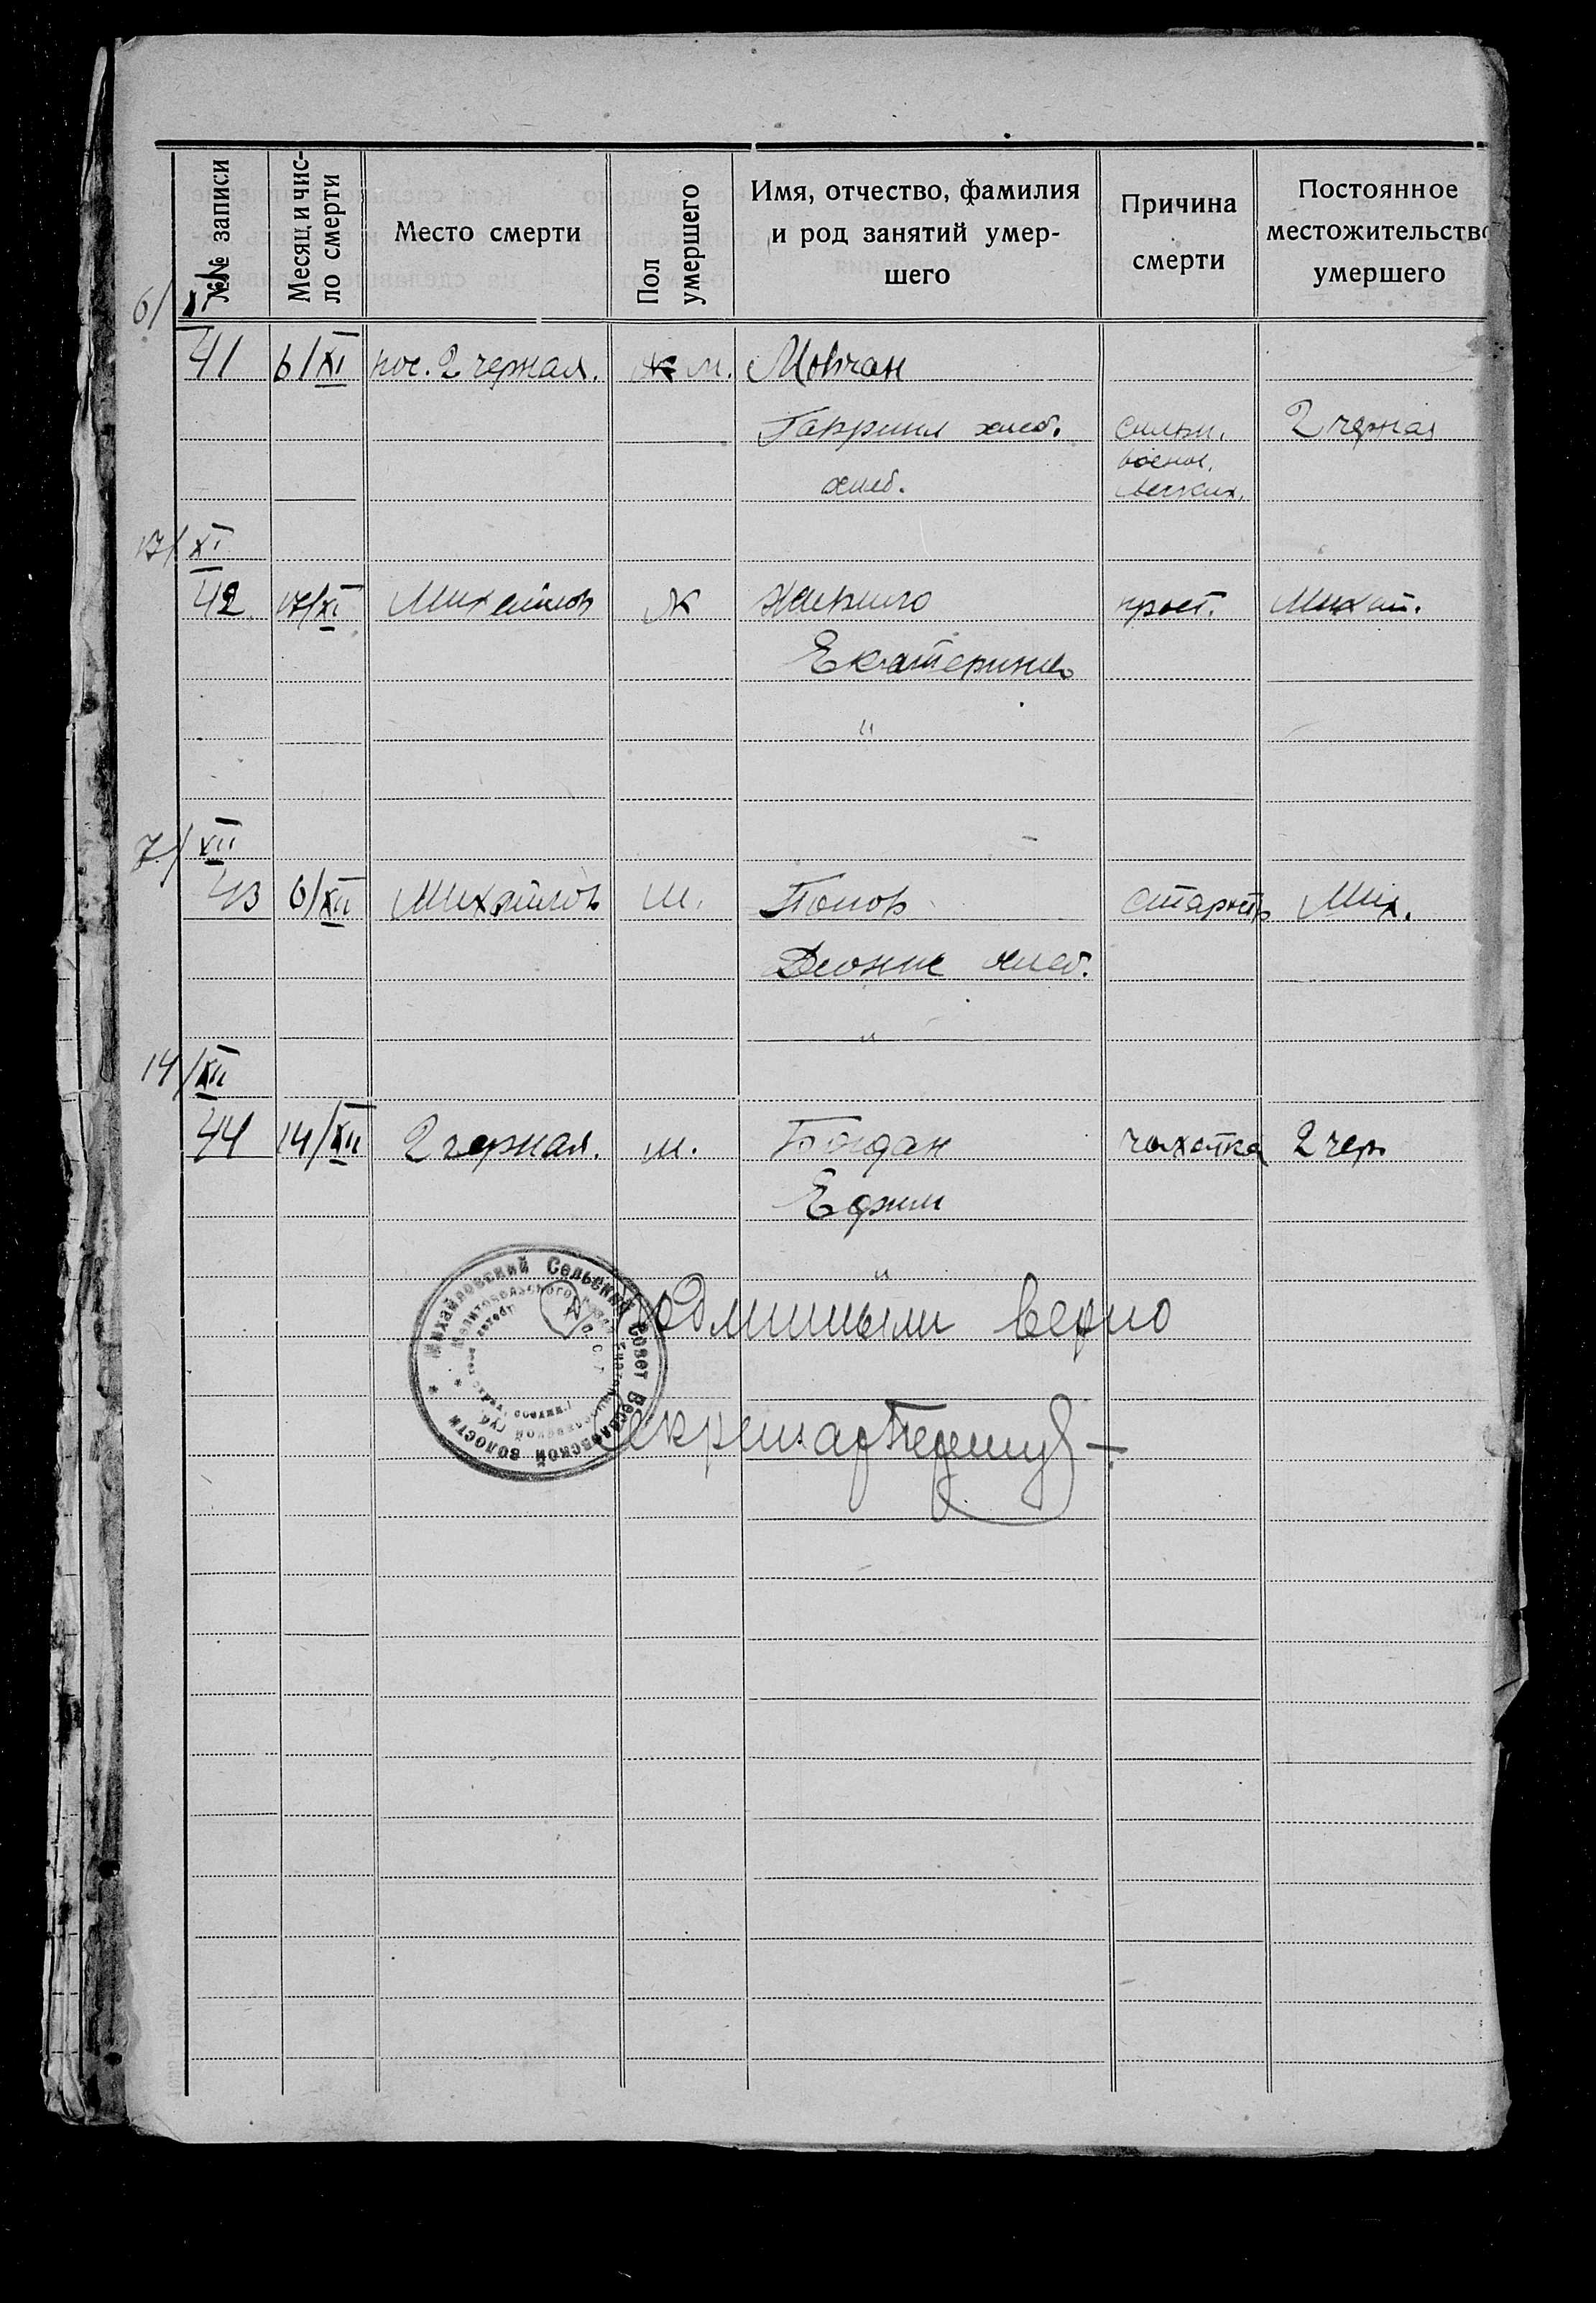 №№ записи
Месяц и чис-
ло смерти
Место смерти
Пол
умершего
Имя, отчество, фамилия
и род занятий умер-
шего
Причина
смерти
Постоянное
местожительство
умершего
6/XI
41 6/XI пос. 2 черная. м. Мовчан
Гавриил хлеб. 2 черная
хлеб. воспал. легких.
17/XI
42 17/XI Михайлов ж
Екатерина
"
7/XII
43 6/XII Михайлов м. Попов старость Мих.
хлеб.
"
14/XII
44 14/XII 2 черная. м. Богдан чахотка 2 чер
Ефим
"
Михайловский Сельский Совет Веселовской волости
подлинным верно
Секретарь